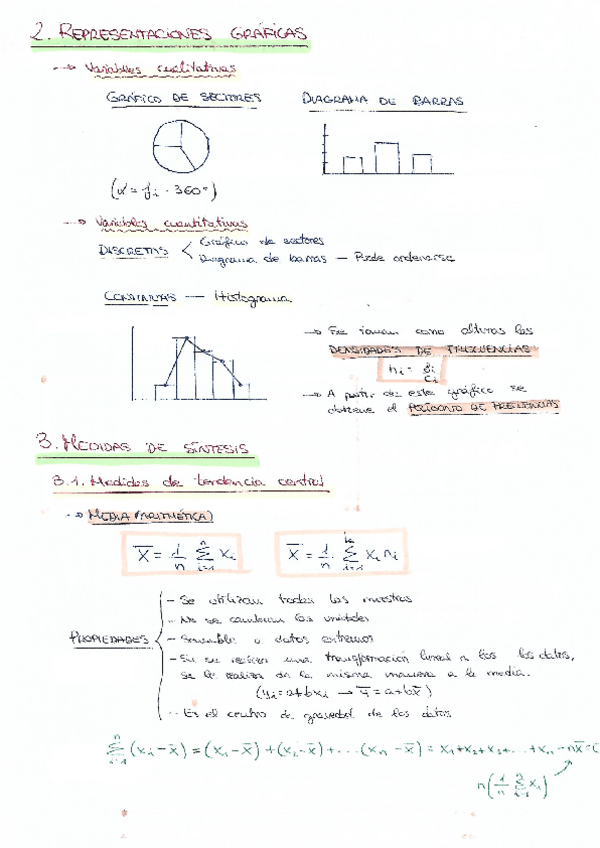 2. REPRESENTACIONES GRÁFICAS
→ Variables cualitativas
GRÁFICO DE SECTORES   DIAGRAMA DE BARRAS
(α = fi · 360º)
→ Variables cuantitativas
DISCRETAS < Gráfico de sectores
Diagrama de barras — Puede ordenarse
CONTINUAS — Histograma
→ Se toman como alturas las
DENSIDADES DE FRECUENCIAS
hi = fi / ci
→ A partir de este gráfico se
obtiene el POLÍGONO DE FRECUENCIAS
3. MEDIDAS DE SÍNTESIS
3.1. Medidas de tendencia central
→ MEDIA (ARITMÉTICA)
x̄ = 1/n Σ(i=1, n) xi   x̄ = 1/n Σ(i=1, k) xi ni
PROPIEDADES
- Se utilizan todas las muestras
- No se cambian las unidades
- Sensible a datos extremos
- Si se realiza una transformación lineal a los datos,
se le realiza de la misma manera a la media.
(yi = a+bxi → ȳ = a+bx̄)
- Es el centro de gravedad de los datos
Σ(i=1, n) (xi − x̄) = (x1 − x̄) + (x2 − x̄) + ... (xn − x̄) = x1 + x2 + x3 + ... + xn − nx̄ = 0
n(1/n Σ(i=1, n) xi)